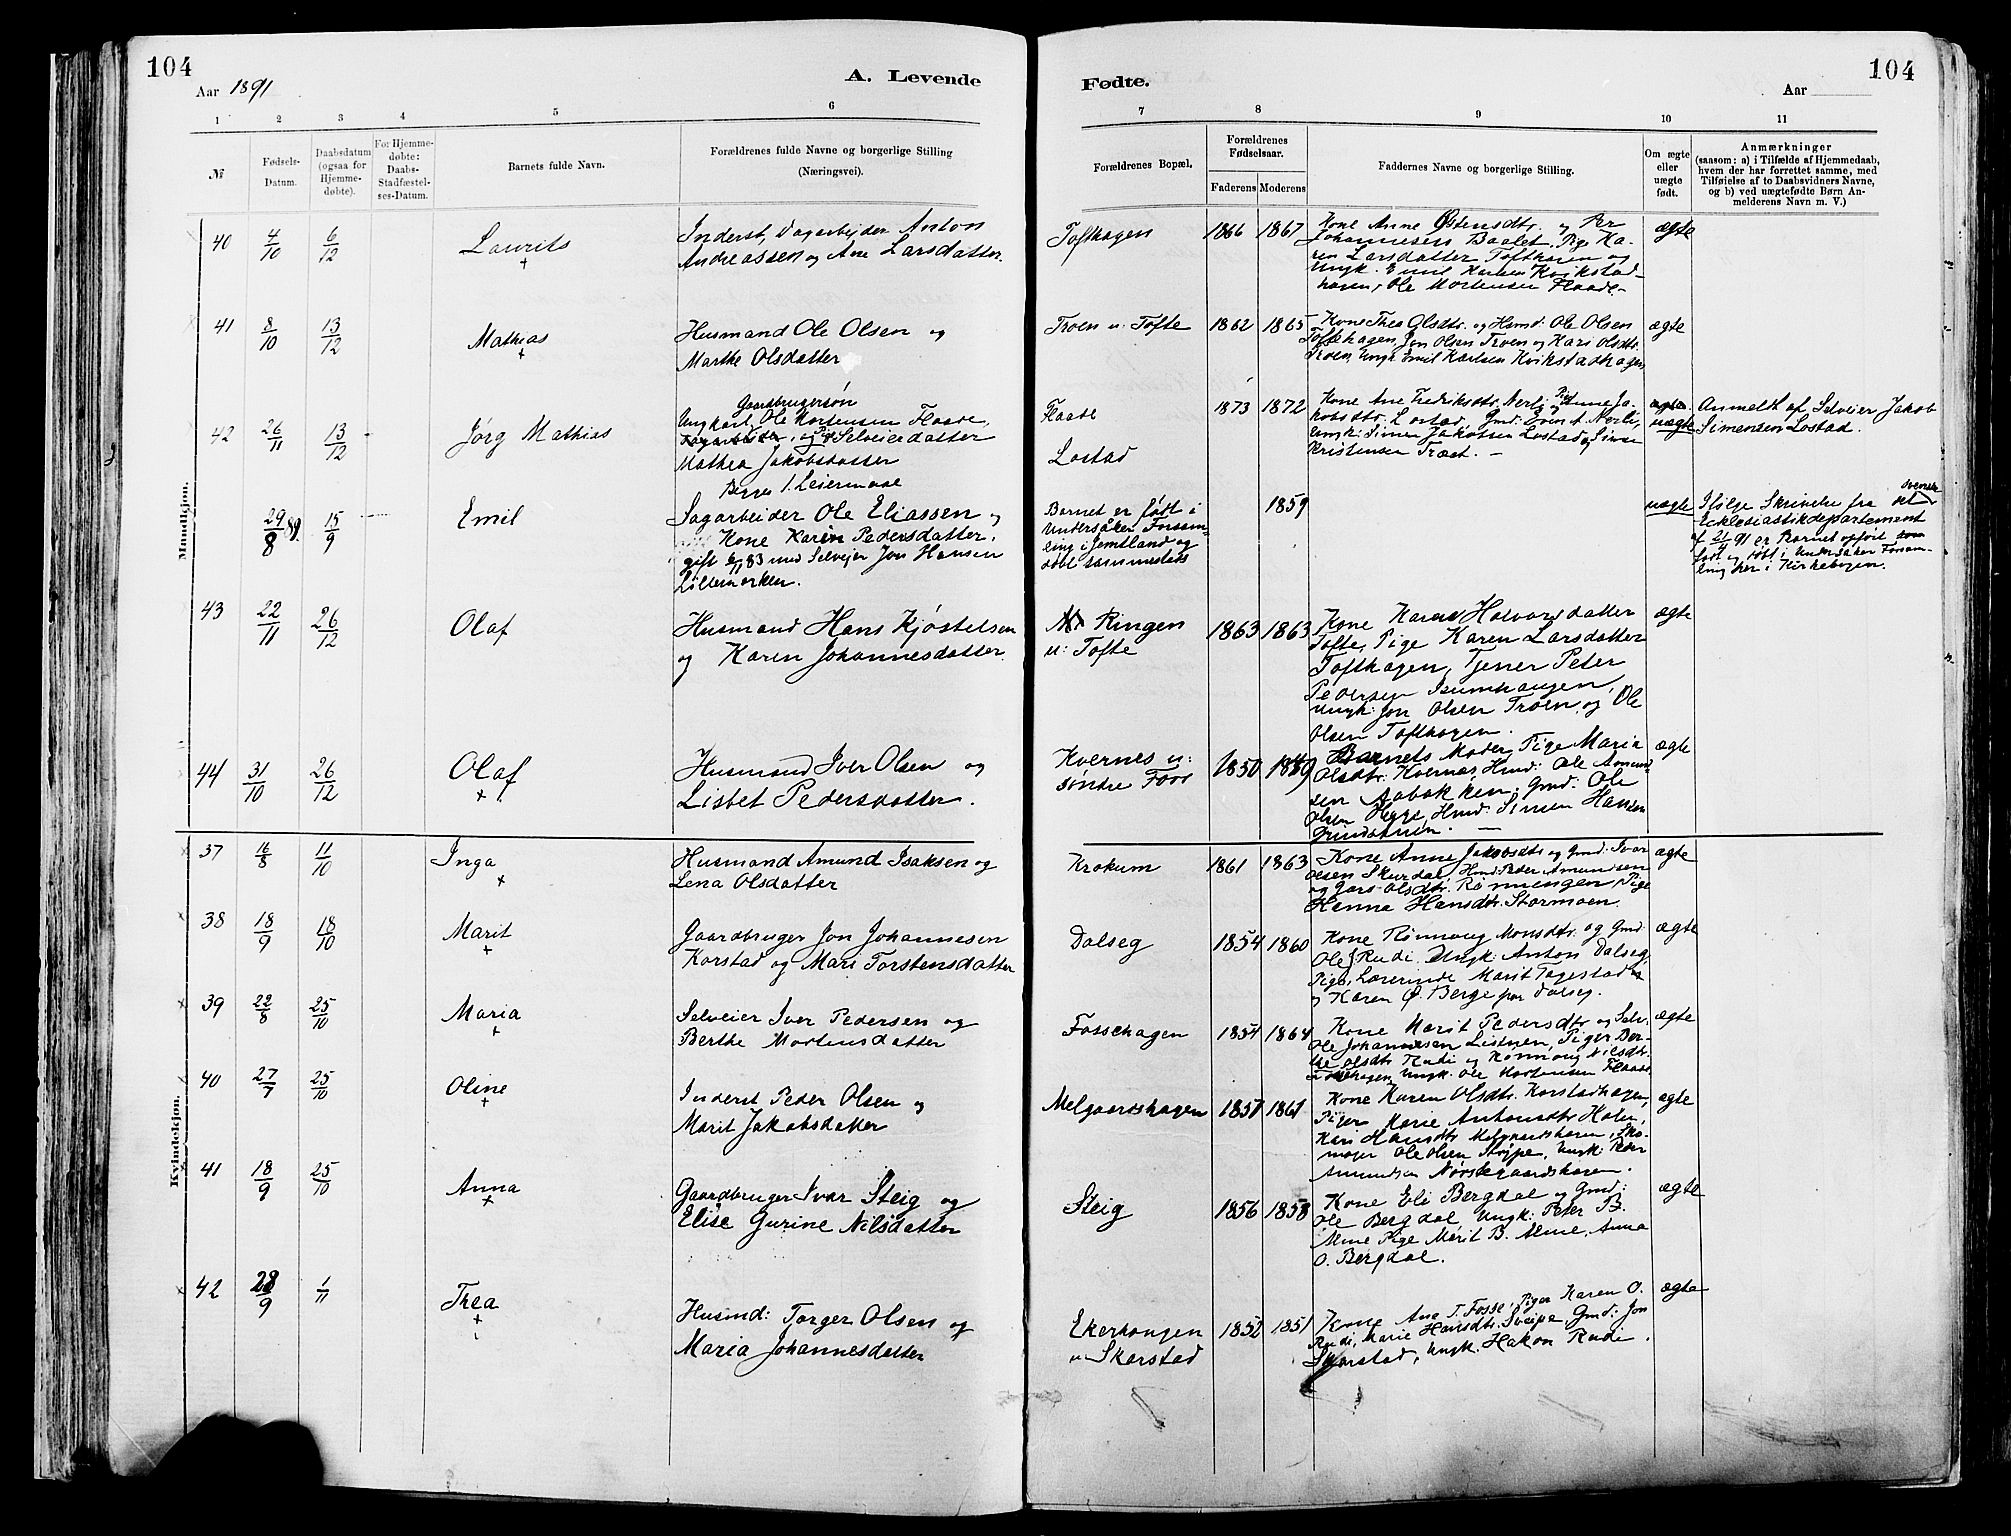 104
Aar 1891
A. Levende
Fødte.
104
Aar
1 2 3 4 5 6 7 8 9 10 11
№
Fødsels-
Datum.
Daabsdatum
(ogsaa for
Hjemme-
døbte).
For Hjemme-
døbte:
Daabs-
Stadfæstel-
ses-Datum.
Barnets fulde Navn.
Forældrenes fulde Navne og borgerlige Stilling
(Næringsvei).
Forældrenes Bopæl.
Forældrenes
Fødselsaar.
Faderens Moderens
Faddernes Navne og borgerlige Stilling.
Om ægte
eller
uægte
født.
Anmærkninger
(saasom: a) i Tilfælde af Hjemmedaab,
hvem der har forrettet samme, med
Tilføielse af to Daabsvidners Navne,
og b) ved uægtefødte Børn An-
melderens Navn m. V.)
Mandkjøn.
40 4/10 6/12 Laurits
Inderst, Dagarbejder Anton
Andreassen og Ane Larsdatter.
Tofthagen 1866 1867
Kone Anne Østensdtr. og Per
Johannesen Baalet, Pige Ka-
ren Larsdatter Tofthagen og
Ungk. Emil Karlsen Kvikstad-
hagen, Ole Mortensen Flaade.
ægte
41 8/10 13/12 Mathias
Husmand Ole Olsen og
Marthe Olsdatter
Troen u: Tofte 1862 1865
Kone Thea Olsdtr. og Hmd: Ole Olsen
Toftehagen, Jon Olsen Troen og Kari Olsdtr.
Troen, Ungk Emil Karlsen Kvikstadhagen
ægte
42 26/11 13/12 Jørg Mathias
Gaardbrugersøn
Ungkarl Ole Mortensen Flaade,
Dagarbeider, og Pige Selveierdatter
Mathea Jakobsdatter
Begges 1. Leiermaal
Flaade
Lostad
1873 1872
Kone Ane Fredriksdtr. Nerli, Pige Anne Ja-
kobsdtr. Lostad Gmd: Even E. Nerli,
Ungk: Simen Jakobsen Lostad og Simen
Kristensen Træet. —
ægte
uægte
Anmeldt af Selveier Jakob
Simensen Lostad.
29/8 89. 15/9 Emil
Sagarbeider Ole Eliassen og
Kone Karin Pedersdatter,
gift 83 med Selvejer Jon Hansen
Lillemorken.
Barnet er født i
Undersåker Forsam-
ling i Jemtland og
døbt sammesteds
1859
uægte
Ifølge Skrivelse fra det svenske
Ecklesiastikdepartement
af 21/ 91 er Barnet opført som
født og døbt i Undersåker Forsam-
ling her i Kirkebogen.
43 22/11 26/12 Olaf
Husmand Hans Kjøstelsen
og Karen Johannesdatter.
Ringen
u: Tofte
1863 1863
Kone Karen Halvorsdatter
Tofte, Pige Karen Larsdatter
Tofthagen, Tjener Peter
Pedersen Isumhaugen,
Ungk: Jon Olsen Troen, og Ole
Olsen Tofthagen.
ægte
44 31/10 26/12 Olaf
Husmand Iver Olsen og
Lisbet Pedersdatter.
Kvernes u:
søndre Foss
1850 1849
Barnets Moder, Pige Maria
Olsdtr. Kvernes, Hmd: Ole Amund-
sen Aabakken, Gmd: Ole
Olsen Hegge, Hmd: Simen Hansen
ægte
Kvindekjøn.
37 16/8 11/10 Inga
Husmand Amund Isaksen og
Lena Olsdatter
Krokum 1861 1863
Kone Anne Jakobsdtr og Gmd: Ivar
Olsen Skurdal, Hmd: Peder Amundsen
og Olsdtr. Rømmengen Pige
Hanna Hansdtr. Stormoen.
ægte
38 18/9 18/10 Marit
Gaardbruger Jon Johannesen
Korstad og Mari Torstensdatter
Dalseg 1854 1860
Kone Rønnaug Monsdtr. og Gmd:
Ole Rudi. Ungk: Anton Dalseg,
Pige, Lærerinde Marit Fagestad
og Karen O. Berge paa Dalseg.
ægte
39 22/8 25/10 Maria
Selveier Iver Pedersen og
Berthe Mortensdatter
Fossehagen 1854 1864
Kone Marit Pedersdtr og Selv:
Ole Johannesen Listuen, Piger Ber-
the Olsdtr. Rudi og Rønnaug Nielsdtr.
Fossehagen, Ungk. Ole Mortensen Flaade
ægte
40 27/7 25/10 Oline
Inderst Peder Olsen og
Marit Jakobsdatter
Melgaardshagen 1857 1861
Kone Karen Olsdtr. Korstadhagen,
Piger Marie Antonsdtr Holen,
Kari Hansdtr Melgaardshagen, Sko-
mager Ole Olsen Støype, Ungk: Peder
Amundsen Nørstegaardshagen.
ægte
41 18/9 25/10 Anna
Gaardbruger Ivar Steig og
Elise Gurine Nilsdatter
Steig 1856 1858
Kone Eli Bergdal og Gmd:
Ole Bergdal, Ungk: Peter B.
Alme Pige Marit B. Alme, Anna
O. Bergdal.
ægte
42 28/9 1/11 Thea
Husmd: Torger Olsen og
Maria Johannesdatter
Ekerhaugen
u Skarstad
1852 1851
Kone Ane T. Fosse, Piger Karen O.
Rudi, Marie Hansdtr. Sveipe, Gmd: Jon
Skarstad, Ungk. Hakon Rudi.
ægte